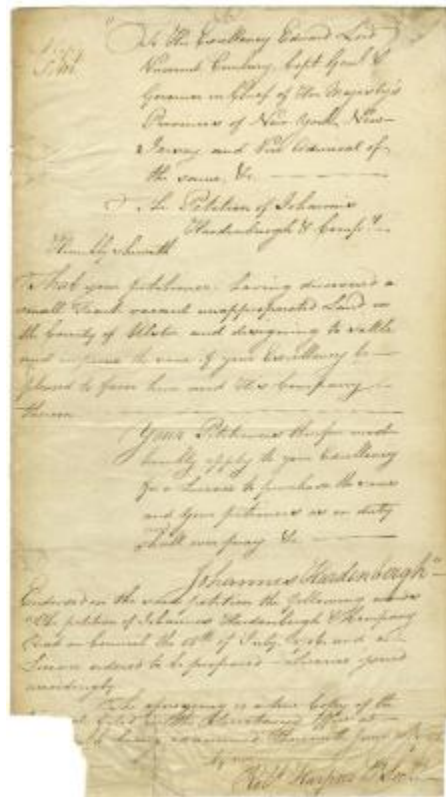 To His Excellency Edward Lord
Viscount Cornbury, Capt Genl &
Governor in Chief of Her Majesty's
Provinces of New York, New
Jersey and Vice Admiral of
the same, &c.
The Petition of Johannis
Hardenburgh & Compy
Humbly sheweth
That your petitioner having discovered a
small Tract vacant unappropriated Land in
the County of Ulster and designing to settle
and improve the same if your Excellency be
pleased to favor him and his Company
therein
Your Petitioner therefore most
humbly apply to your Excellency
for a License to purchase the same
and your petitioners as in duty
shall ever pray &c
Johannes Hardenbergh
Endorsed on the said petition the following words
"The petition of Johannes Hardenbergh & Company
Read in Council the 18th of July, and a
License ordered to be prepared License
accordingly
The aforegoing is a true Copy of the
filed in the Office
being examined therewith June
Robt Harpur D Secy